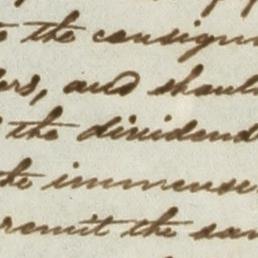 the consignm
ers, and shoul
the dividend
the immense
remit the sam